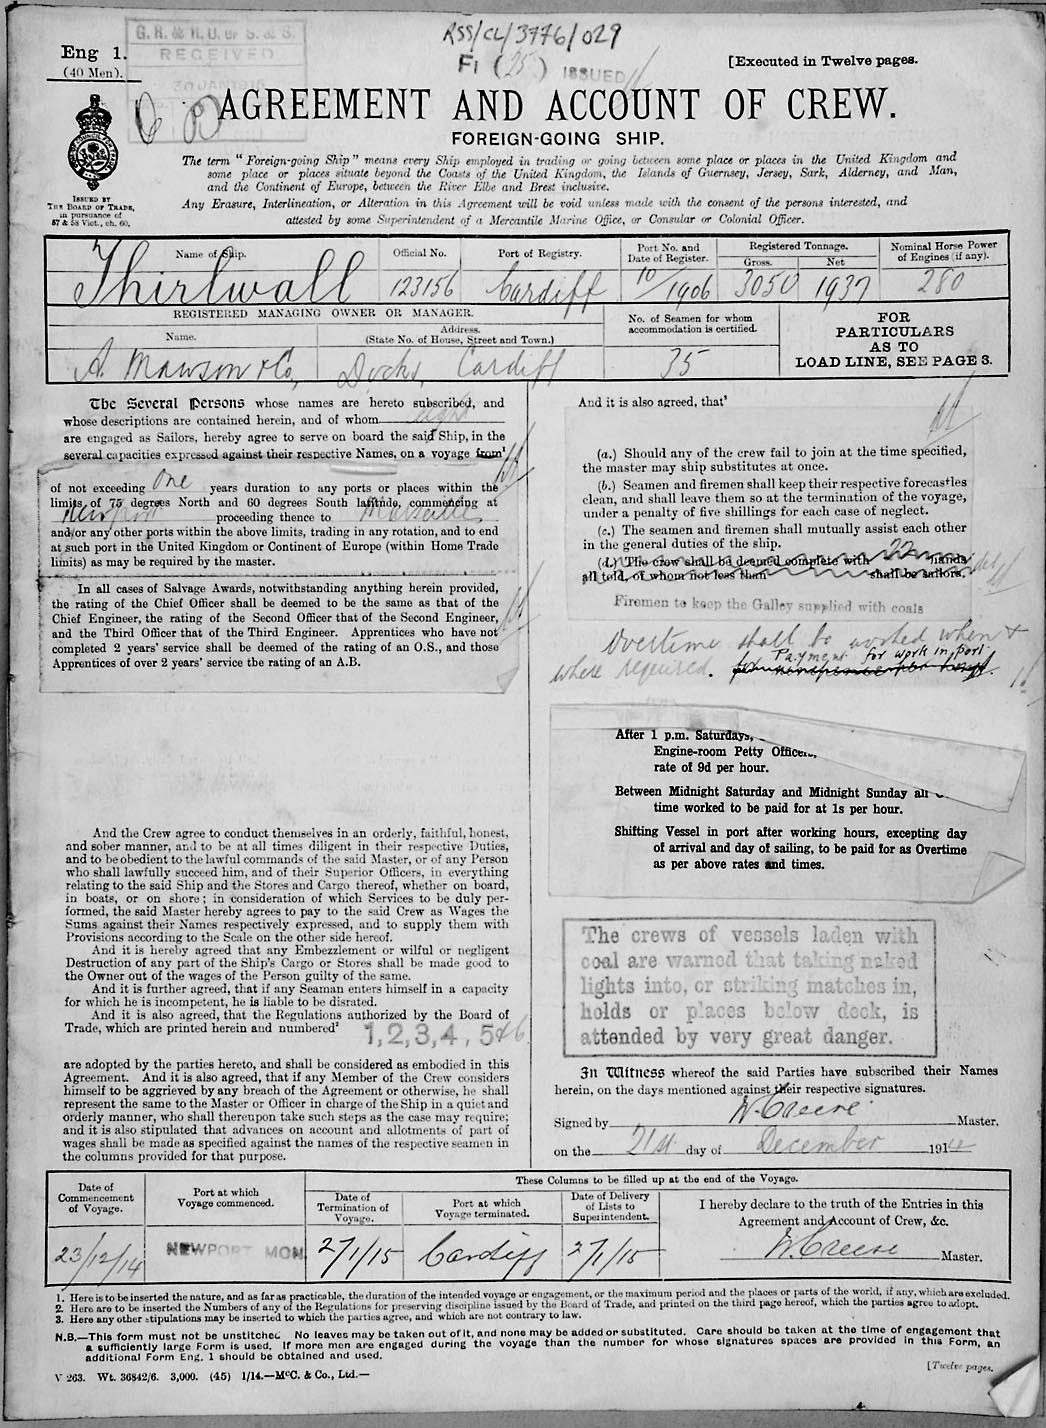 RSS/CL/3776/029
G. R. & R. O. OF S. & S.
RECEIVED
30 JAN 1915
F1 (25) ISSUED
Eng 1.
(40 Men).
[Executed in Twelve pages.
AGREEMENT AND ACCOUNT OF CREW.
FOREIGN-GOING SHIP.
ISSUED BY
THE BOARD OF TRADE,
in pursuance of
57 & 58 Vict., ch. 60.
The term "Foreign-going Ship" means every Ship employed in trading or going between some place or places in the United Kingdom and
some place or places situate beyond the Coasts of the United Kingdom, the Islands of Guernsey, Jersey, Sark, Alderney, and Man,
and the Continent of Europe, between the River Elbe and Brest inclusive.
Any Erasure, Interlineation, or Alteration in this Agreement will be void unless made with the consent of the persons interested, and
attested by some Superintendent of a Mercantile Marine Office, or Consular or Colonial Officer.
Name of Ship.
Official No.
Port of Registry.
Port No. and
Date of Register.
Registered Tonnage.
Gross.
Net
Nominal Horse Power
of Engines (if any).
Thirlwall
123156
Cardiff
10/1906
3050
1937
280
REGISTERED MANAGING OWNER OR MANAGER.
Name.
Address.
(State No. of House, Street and Town.)
No. of Seamen for whom
accommodation is certified.
FOR
PARTICULARS
AS TO
LOAD LINE, SEE PAGE 3.
A. Mawson & Co,
Docks, Cardiff
35
The Several Persons whose names are hereto subscribed, and
whose descriptions are contained herein, and of whom eight
are engaged as Sailors, hereby agree to serve on board the said Ship, in the
several capacities expressed against their respective Names, on a voyage from¹
of not exceeding One years duration to any ports or places within the
limits of 75 degrees North and 60 degrees South latitude, commencing at
Newport proceeding thence to Marseilles
and/or any other ports within the above limits, trading in any rotation, and to end
at such port in the United Kingdom or Continent of Europe (within Home Trade
limits) as may be required by the master.
In all cases of Salvage Awards, notwithstanding anything herein provided,
the rating of the Chief Officer shall be deemed to be the same as that of the
Chief Engineer, the rating of the Second Officer that of the Second Engineer,
and the Third Officer that of the Third Engineer. Apprentices who have not
completed 2 years' service shall be deemed of the rating of an O.S., and those
Apprentices of over 2 years' service the rating of an A.B.
And the Crew agree to conduct themselves in an orderly, faithful, honest,
and sober manner, and to be at all times diligent in their respective Duties,
and to be obedient to the lawful commands of the said Master, or of any Person
who shall lawfully succeed him, and of their Superior Officers, in everything
relating to the said Ship and the Stores and Cargo thereof, whether on board,
in boats, or on shore; in consideration of which Services to be duly per-
formed, the said Master hereby agrees to pay to the said Crew as Wages the
Sums against their Names respectively expressed, and to supply them with
Provisions according to the Scale on the other side hereof.
And it is hereby agreed that any Embezzlement or wilful or negligent
Destruction of any part of the Ship's Cargo or Stores shall be made good to
the Owner out of the wages of the Person guilty of the same.
And it is further agreed, that if any Seaman enters himself in a capacity
for which he is incompetent, he is liable to be disrated.
And it is also agreed, that the Regulations authorized by the Board of
Trade, which are printed herein and numbered²
1,2,3,4, 5 & 6
are adopted by the parties hereto, and shall be considered as embodied in this
Agreement. And it is also agreed, that if any Member of the Crew considers
himself to be aggrieved by any breach of the Agreement or otherwise, he shall
represent the same to the Master or Officer in charge of the Ship in a quiet and
orderly manner, who shall thereupon take such steps as the case may require;
and it is also stipulated that advances on account and allotments of part of
wages shall be made as specified against the names of the respective seamen in
the columns provided for that purpose.
And it is also agreed, that³
(a.) Should any of the crew fail to join at the time specified,
the master may ship substitutes at once.
(b.) Seamen and firemen shall keep their respective forecastles
clean, and shall leave them so at the termination of the voyage,
under a penalty of five shillings for each case of neglect.
(c.) The seamen and firemen shall mutually assist each other
in the general duties of the ship.
(d.) The crew shall be deemed complete with 22 hands
all told, of whom not less than shall be sailors.
Firemen to keep the Galley supplied with coals
Overtime shall be worked when &
where required. Payment for work in port
After 1 p.m. Saturdays,
Engine-room Petty Officers,
rate of 9d per hour.
Between Midnight Saturday and Midnight Sunday all
time worked to be paid for at 1s per hour.
Shifting Vessel in port after working hours, excepting day
of arrival and day of sailing, to be paid for as Overtime
as per above rates and times.
The crews of vessels laden with
coal are warned that taking naked
lights into, or striking matches in,
holds or places below deck, is
attended by very great danger.
In Witness whereof the said Parties have subscribed their Names
herein, on the days mentioned against their respective signatures.
Signed by W. Creese Master.
on the 21st day of December 1914
Date of
Commencement
of Voyage.
Port at which
Voyage commenced.
These Columns to be filled up at the end of the Voyage.
Date of
Termination of
Voyage.
Port at which
Voyage terminated.
Date of Delivery
of Lists to
Superintendent.
I hereby declare to the truth of the Entries in this
Agreement and Account of Crew, &c.
23/12/14
NEWPORT MON
27/1/15
Cardiff
27/1/15
W. Creese Master.
1. Here is to be inserted the nature, and as far as practicable, the duration of the intended voyage or engagement, or the maximum period and the places or parts of the world, if any, which are excluded.
2. Here are to be inserted the Numbers of any of the Regulations for preserving discipline issued by the Board of Trade, and printed on the third page hereof, which the parties agree to adopt.
3. Here any other stipulations may be inserted to which the parties agree, and which are not contrary to law.
N.B.—This form must not be unstitched. No leaves may be taken out of it, and none may be added or substituted. Care should be taken at the time of engagement that
a sufficiently large Form is used. If more men are engaged during the voyage than the number for whose signatures spaces are provided in this Form, an
additional Form Eng. 1 should be obtained and used.
V 263. Wt. 36842/6. 3,000. (45) 1/14.—McC. & Co., Ltd.—
[Twelve pages.